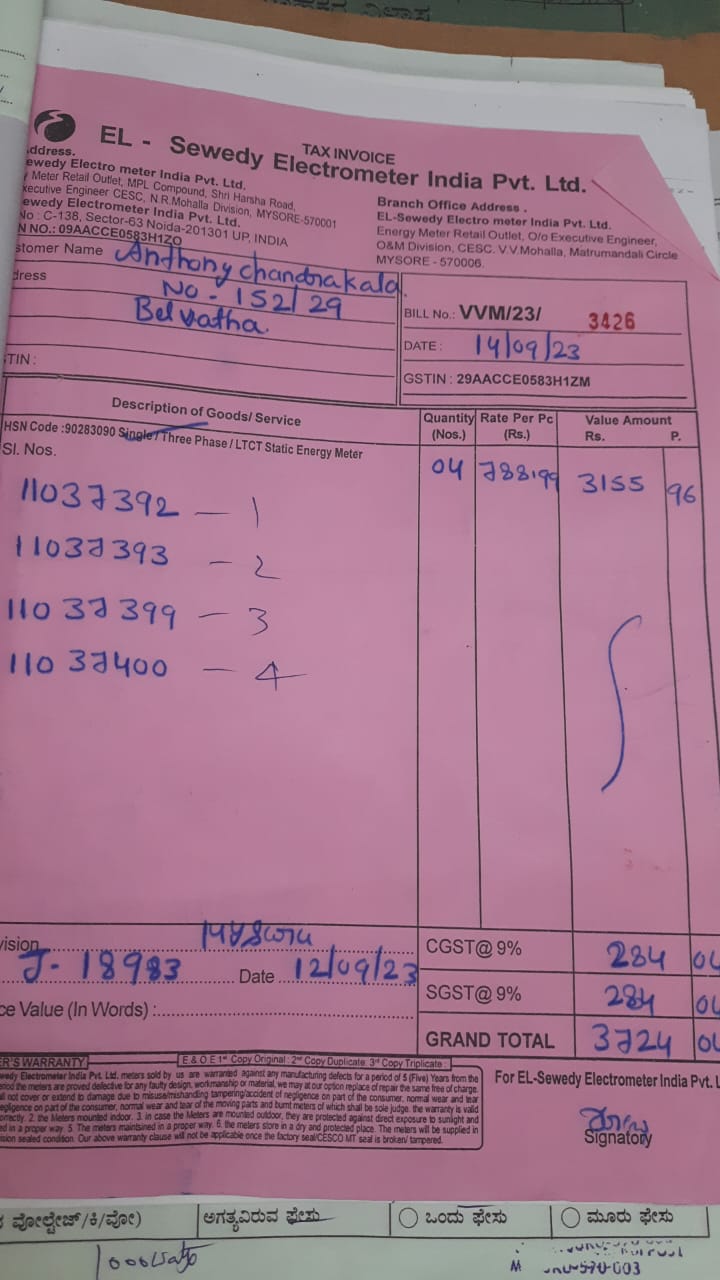 TAX INVOICE
EL - Sewedy Electrometer India Pvt. Ltd.
ddress.
ewedy Electro meter India Pvt. Ltd.
Meter Retail Outlet, MPL Compound, Shri Harsha Road,
xecutive Engineer CESC, N.R.Mohalla Division, MYSORE-570001
ewedy Electrometer India Pvt. Ltd.
No : C-138, Sector-63 Noida-201301 UP, INDIA
N NO.: 09AACCE0583H1ZO
Branch Office Address .
EL-Sewedy Electro meter India Pvt. Ltd.
Energy Meter Retail Outlet, O/o Executive Engineer,
O&M Division, CESC. V.V.Mohalla, Matrumandali Circle
MYSORE - 570006.
stomer Name Anthony chandrakala.
dress No - 152/29
Belvatha.
TIN :
BILL No.: VVM/23/ 3426
DATE : 14/09/23
GSTIN : 29AACCE0583H1ZM
Description of Goods/ Service
Quantity (Nos.)
Rate Per Pc (Rs.)
Value Amount
Rs. P.
HSN Code :90283090 Single / Three Phase / LTCT Static Energy Meter
Sl. Nos.
04 788.99 3155 96
11037392 — 1
11037393 — 2
11037399 — 3
11037400 — 4
vision
J- 18983 Date 12/09/23
ce Value (In Words) :
CGST@ 9% 284 04
SGST@ 9% 284 04
GRAND TOTAL 3724 04
E & O E 1st Copy Original : 2nd Copy Duplicate 3rd Copy Triplicate :
ER'S WARRANTY
wedy Electrometer India Pvt. Ltd. meters sold by us are warranted against any manufacturing defects for a period of 5 (Five) Years from the
riod the meters are proved defective for any faulty design, workmanship or material, we may at our option replace of repair the same free of charge.
ll not cover or extend to damage due to misuse/mishandling tampering/accident of negligence on part of the consumer, normal wear and tear
egligence on part of the consumer, normal wear and tear of the moving parts and burnt meters of which shall be sole judge. the warranty is valid
orrectly. 2. the Meters mounted indoor. 3. in case the Meters are mounted outdoor, they are protected against direct exposure to sunlight and
ed in a proper way. 5. The meters maintained in a proper way. 6. the meters store in a dry and protected place. The meters will be supplied in
ision sealed condition. Our above warranty clause will not be applicable once the factory seal/CESCO MT seal is broken/ tampered.
For EL-Sewedy Electrometer India Pvt. L
Signatory
ವೋಲ್ಟೇಜ್/ಕಿ/ವೋ)
ಅಗತ್ಯವಿರುವ ಫೇಸು
ಒಂದು ಫೇಸು
ಮೂರು ಫೇಸು
570-003